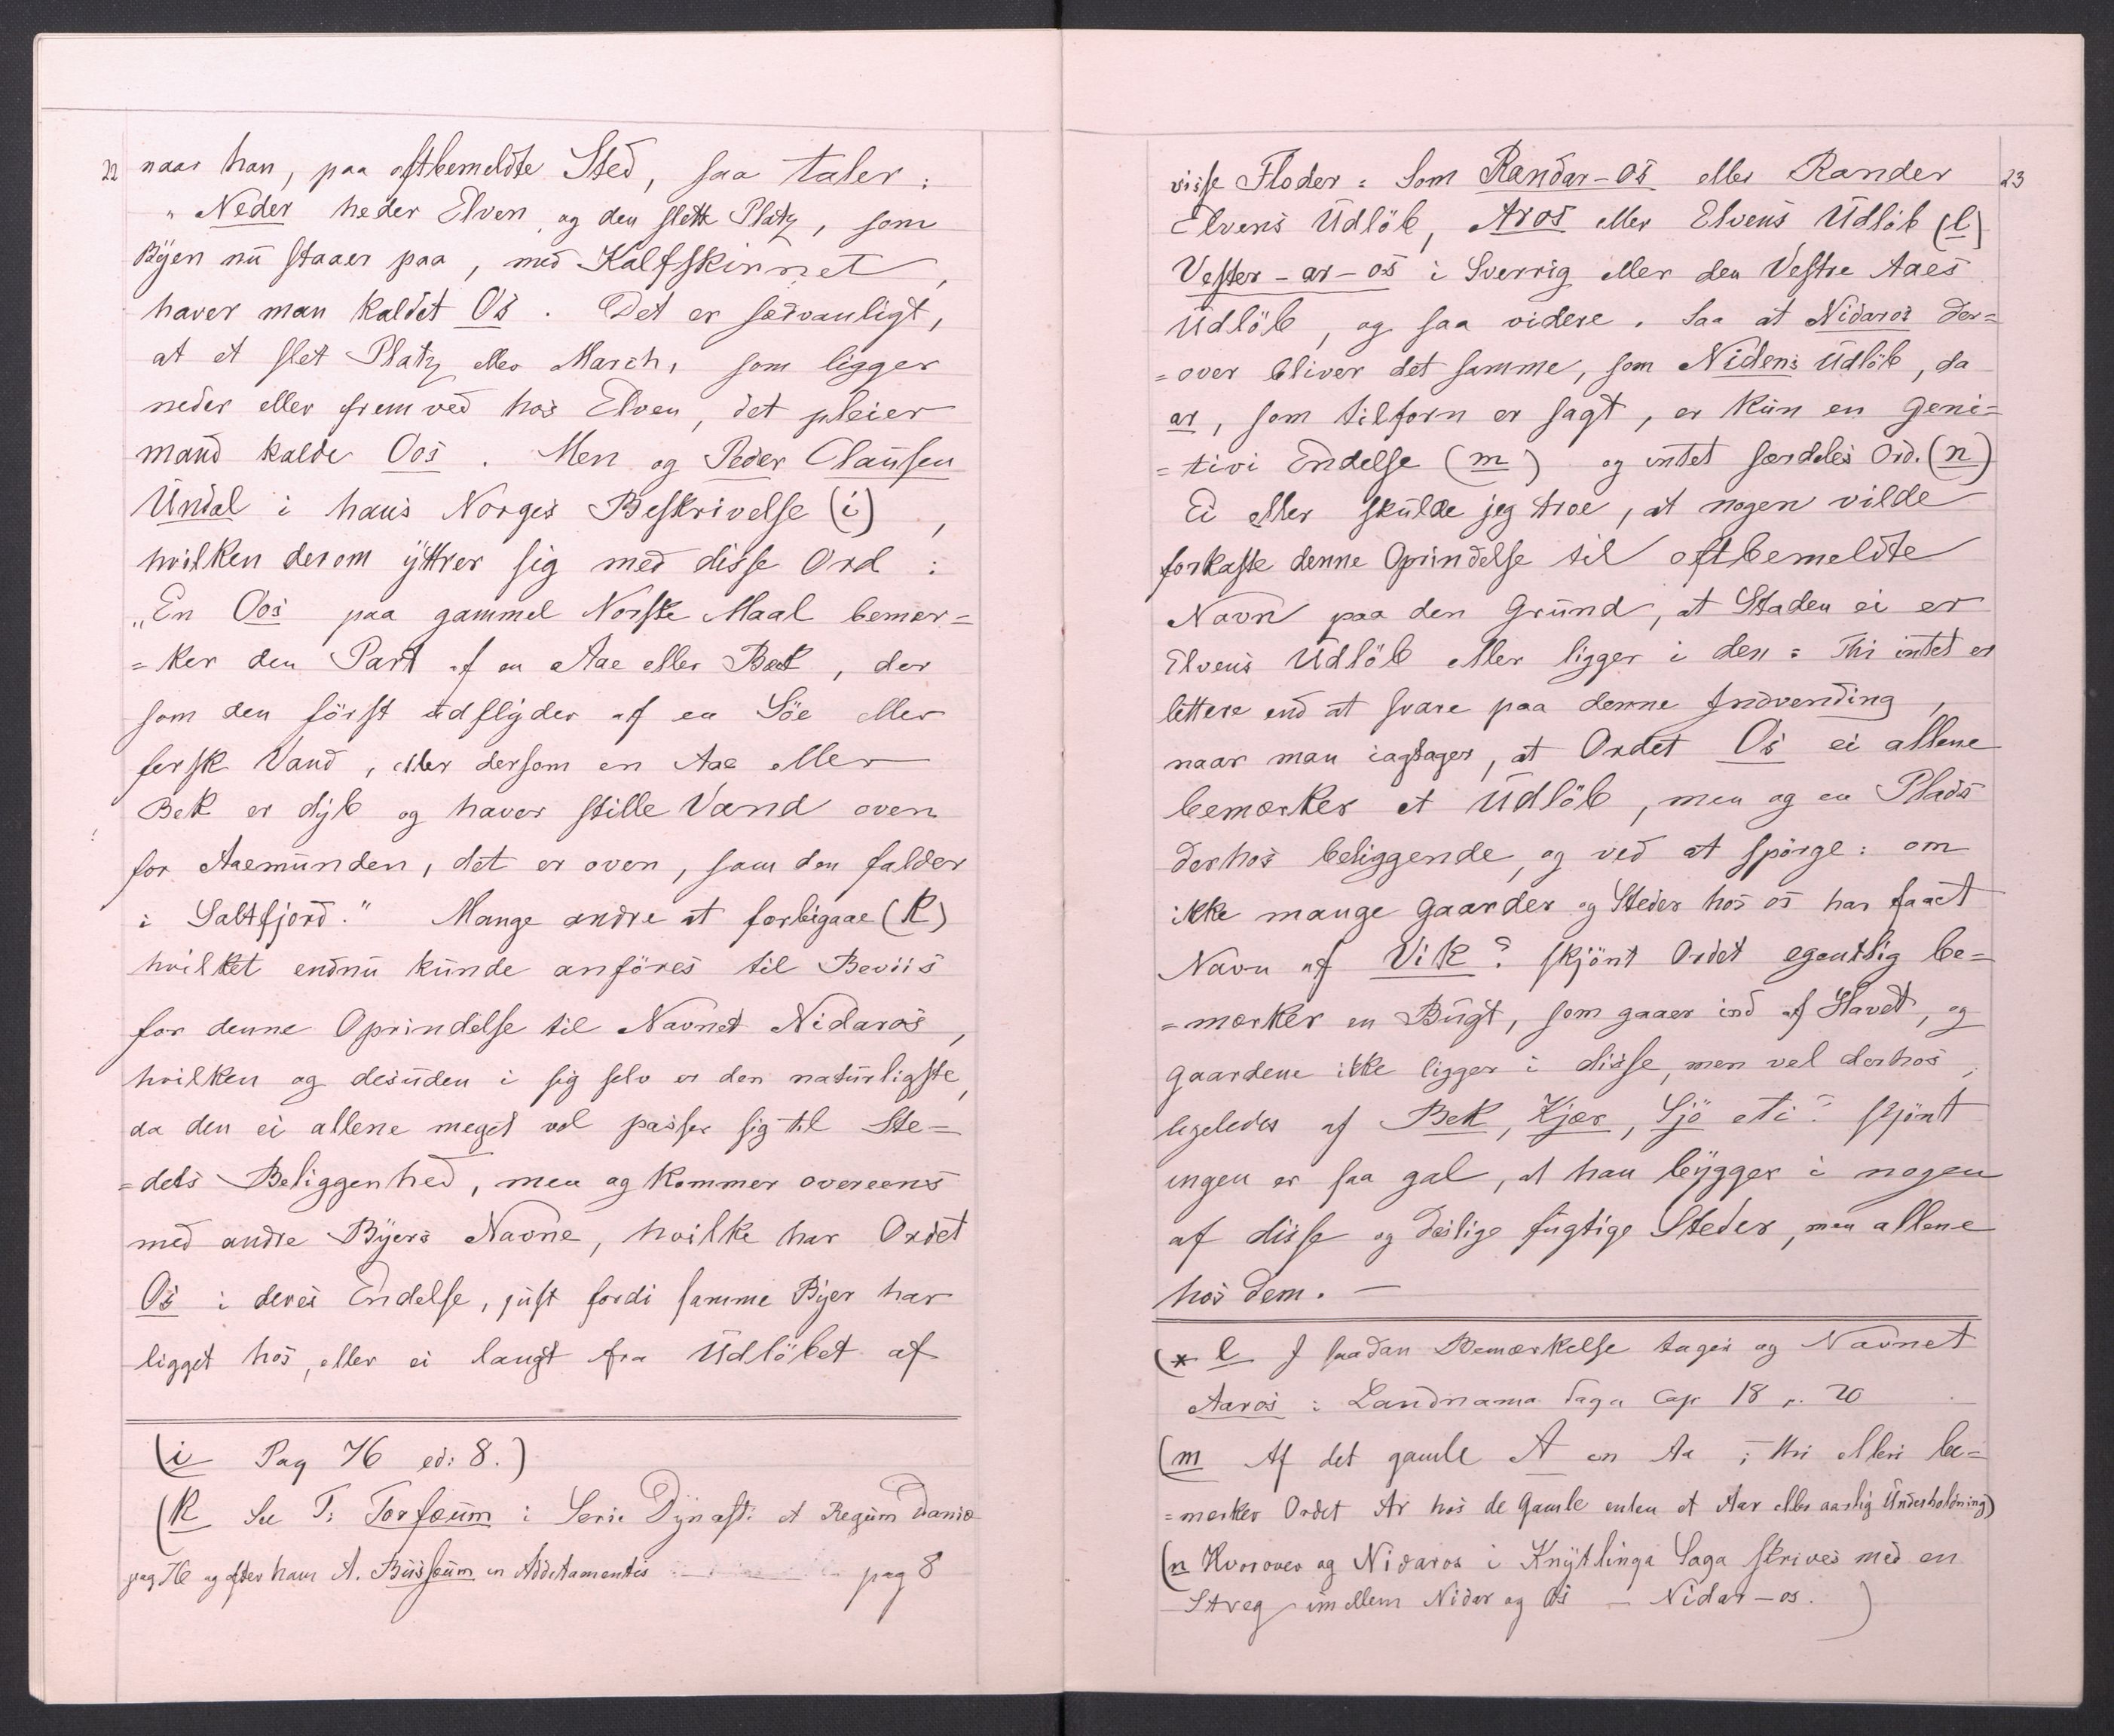 22
naar han, paa oftbemeldte Sted, saa taler:
"Neder heder Elven, og den slette Platz, som
Byen nu staaer paa, med Kalfskinnet,
haver man kaldet Os. Det er sædvanligt,
at et slet Platz eller March, som ligger
neder eller frem ved hos Elven, det pleier
mand kalde Oos. Men og Peder Clausen
Undal i hans Norges Beskrivelse (i),
hvilken derom yttrer sig med disse Ord:
"En Oos paa gammel Norske Maal bemær=
=ker den Part af en Aae eller Bæk, der
som den först udflyder af en Söe eller
fersk Vand, eller dersom en Aae eller
Bek er dyb og haver stille Vand oven
for Aaemunden, det er oven, som den falder
i Saltfjord." Mange andre at forbigaae (k)
hvilket endnu kunde anföres til Beviis
for denne Oprindelse til Navnet Nidaros,
hvilken og desuden i sig selv er den naturligste,
da den ei allene meget vel passer sig til Ste=
=dets Beliggenhed, men og kommer overeens
med andre Byers Navne, hvilke har Ordet
Os i deres Endelse, just fordi samme Byer har
ligget hos, eller ei langt fra Udlöbet af
(i Pag 76 ed: 8.)
(k See T: Torfæum i Serie Dynast: et Regum Daniæ
pag 76 og efter ham A. Bussæum in Additamentis pag 8
23
visse Floder: Som Randar-os eller Rander
Elvens Udlöb, Aros eller Elvens Udlöb (l)
Vester-ar-os i Sverrig eller den Vestre Aaes
Udlöb, og saa videre. Saa at Nidaros der=
=over bliver det samme, som Nidens Udlöb, da
ar, som tilforn er sagt, er kun en Geni=
=tivi Endelse (m) og intet særdeles Ord. (n)
Ei eller skulde jeg troe, at nogen vilde
forkaste denne Oprindelse til oftbemeldte
Navn paa den Grund, at Staden ei er
Elvens Udlöb eller ligger i den: Thi intet er
lettere end at svare paa denne Indvending,
naar man iagtager, at Ordet Os ei allene
bemærker et Udlöb, men og en Plads
derhos beliggende, og ved at spörge: om
ikke mange Gaarder og Steder hos os har faaet
Navn af Vik? skjönt Ordet egentlig be=
=mærker en Bugt, som gaaer ind af Havet, og
Gaardene ikke ligger i disse, men vel derhos,
ligeledes af Bek, Kjær, Sjö etc? skjönt
ingen er saa gal, at han bygger i nogen
af disse og deslige fugtige Steder, men allene
hos dem. —
(* l I saadan Bemærkelse tages og Navnet
Aaros i Landnama Saga Cap 18 p. 20
(m Af det gamle A en Aa; thi ellers be=
=mærker Ordet Ar hos de Gamle enten et Aar eller aarlig Underholdning)
(n Hvorover og Nidaros i Knytlinga Saga skrives med en
Streg imellem Nidar og Os — Nidar-os.)